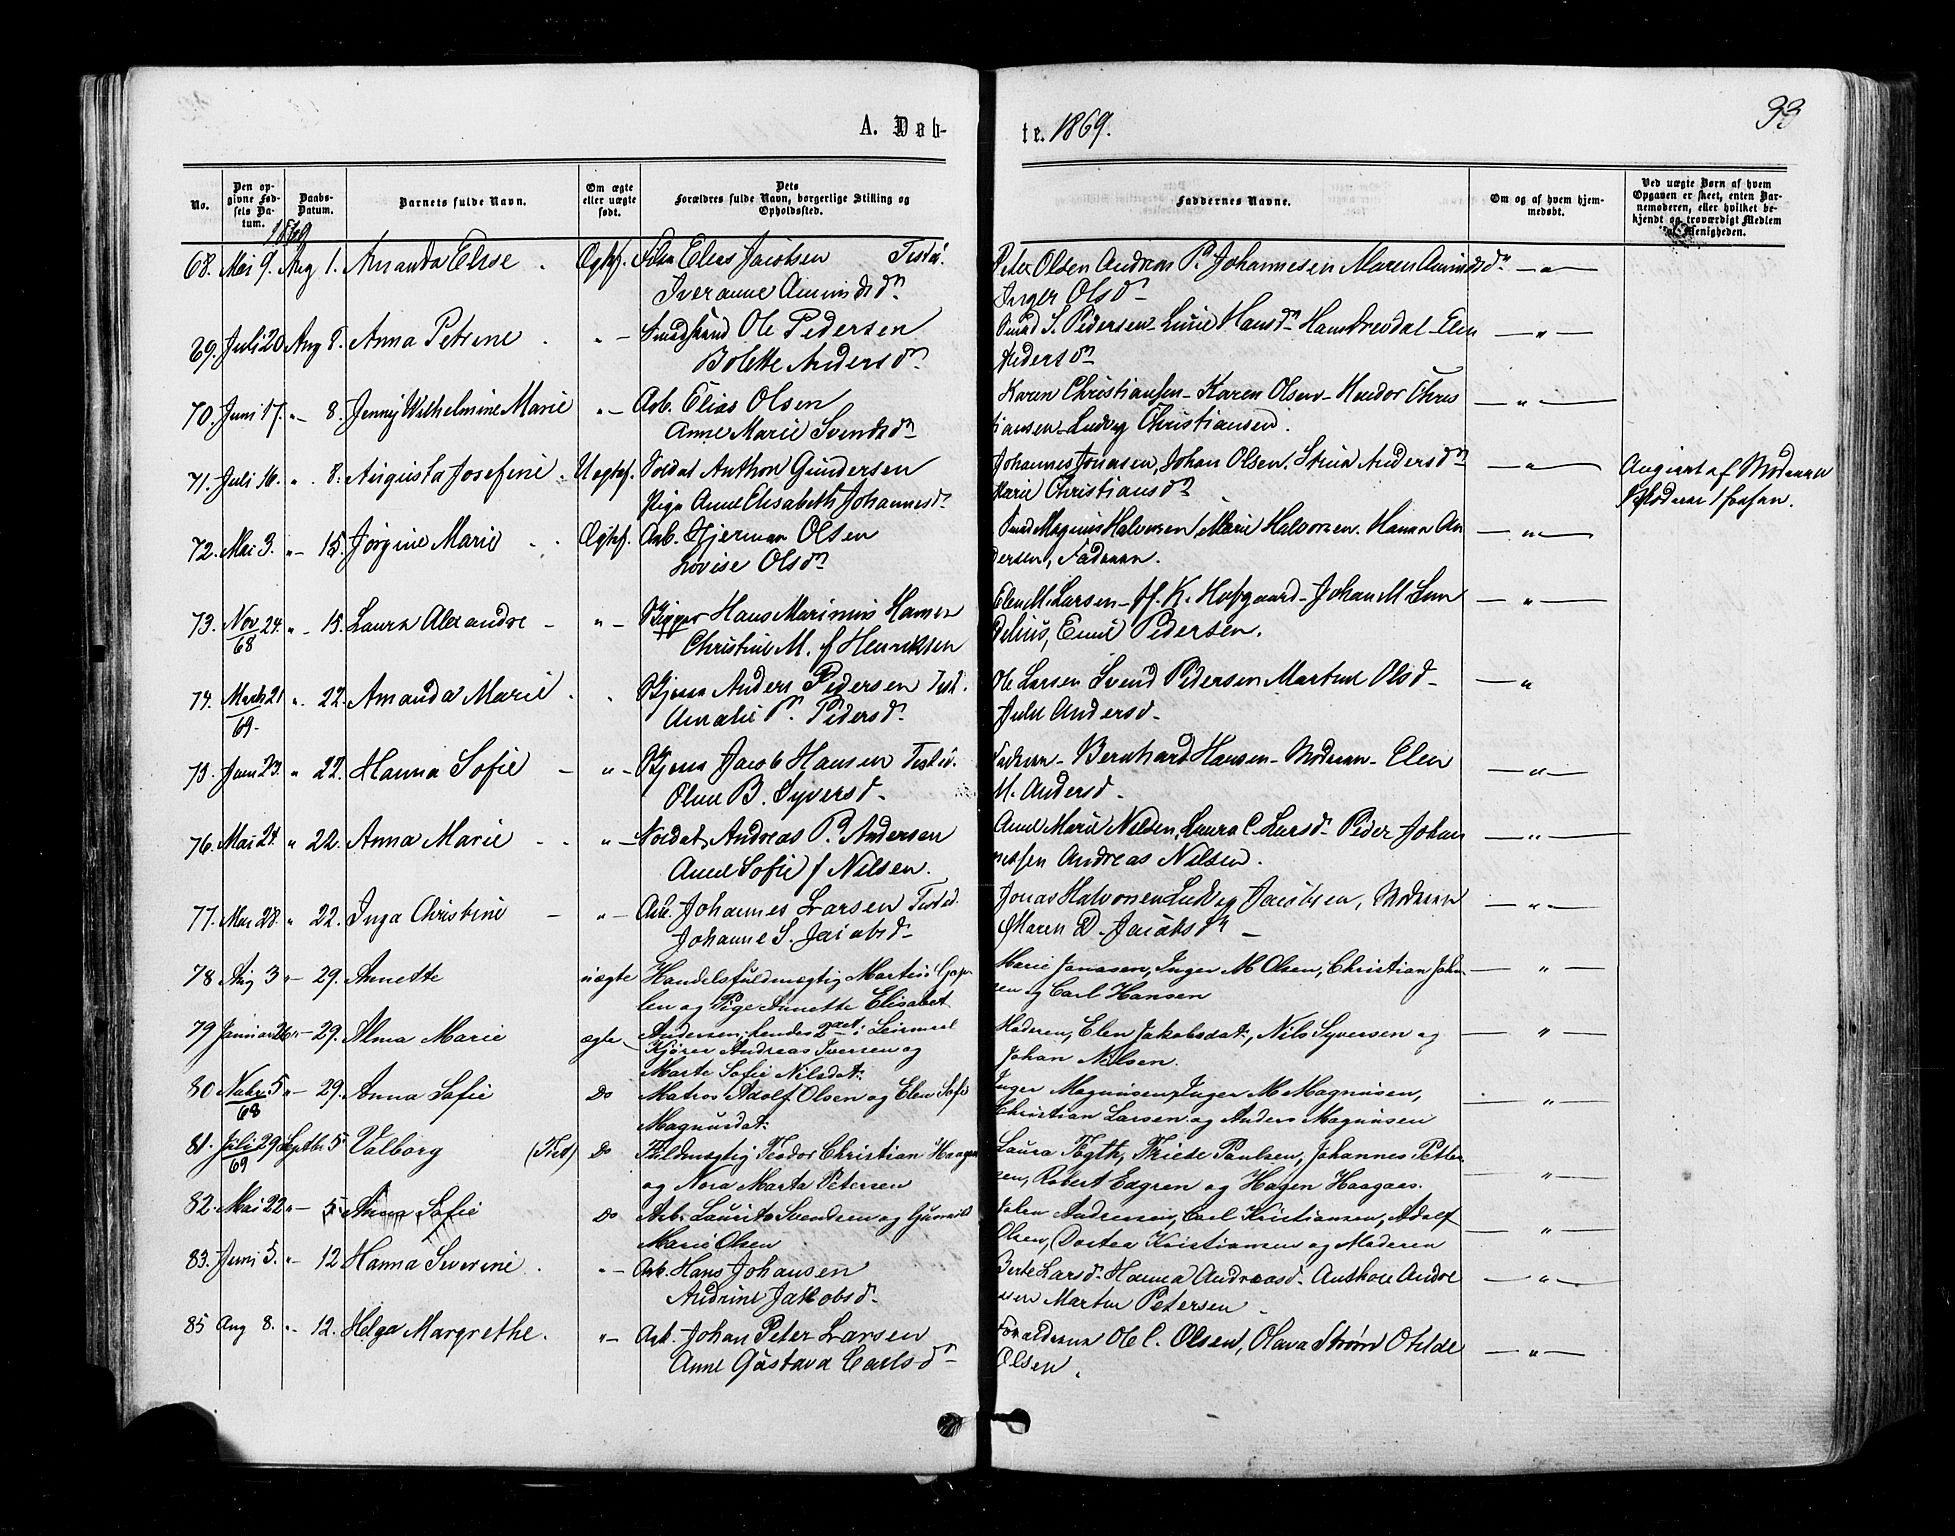 33
A. Døb-
te. 1869.
No.
Den op-
givne Fød-
sels Da-
tum.
Daabs-
Datum.
Barnets fulde Navn.
Om ægte
eller uægte
født.
Dets
Forældres fulde Navn, borgerlige Stilling og
Opholdssted.
Faddernes Navne.
Om og af hvem hjem-
medøbt.
Ved uægte Børn af hvem
Opgaven er skeet, enten Bar-
nemoderen, eller hvilket be-
kjendt og troværdigt Medlem
af Menigheden.
1869
68. Mai 9. Aug 1. Amanda Elise Ægtef. Elias Jacobsen Peter Olsen Andreas P. Johannesen Maren Amundsdn
Iveranne Amundsdn Inger Olsdn
69. Juli 20 Aug 8. Anna Petrine " Ole Pedersen S. Pedersen Hansdn Elen
Bolette Andersdn Pedersdn
70. Juni 17. " 8. Jenny Wilhelmine Marie " Arb. Elias Olsen Karen Christiansen - Karen Olsen - Chris
Anne Marie Svendsdn tiansen - Ludvg Christiansen.
71. Juli 16. " 8. Augusta Josefine Uegtef. Soldat Anthon Gundersen Johannes Jonasen, Johan Olsen, Stina Andersdn Angivet af Moderen
Pige Anne Elisabeth Johannesd. Marie Christiansdn
72. Mai 3. " 15. Jørgine Marie Ægtef. Arb. Hjerman Olsen Magnus Halvorsen Marie Halvorsen. Hanna An
Lovise Olsdn dersen, Faderen.
73. Nov 24. " 15. Laura Alexandre " Skipper Hans Marinius Hansen Elen M. Larsen - K. Hofgaard - Johan M.
68 Christine M. f Henriksen Emil Pedersen.
74. Marts 21 " 22. Amanda Marie " Anders Pedersen Tist. Ole Larsen Svend Pedersen Martine Olsd
69. Amalie P. Pedersd. Andersd
75. Juni 23. " 22. Hanna Sofie " Jacob Hansen Tisted. Faderen - Bernhard Hansen - Moderen - Elen
Oline B. Syversd. M. Andersd.
76. Mai 24. " 22. Anna Marie " Soldat Andreas P. Andersen Anne Marie Nilsen, Laura C. Larsd. Peder Johan
Anne Sofie f Nilsen. nessen Andreas Nilsen.
77. Mai 28. " 22. Inga Christine " Arb. Johannes Larsen Tisted. Jonas Halvorsen Ludvig Jacobsen, Moderen
Johanne S. Jacobsd. Maren D. Jacobsdn
78 Aug 3 " 29. Annette uægte Handelsfuldmægtig Martius Marie Jonasen, Inger M Olsen, Christian Johan
og Pige Annette Elisabet sen og Carl Hansen
79 Januar 26 " 29. Alma Marie ægte Andersen, hendes 2det Leiermaal Moderen, Elen Jakobsdat:, Nils Syversen og
Andreas Iversen og Johan Nilsen.
Marte Sofie Nilsdat:
80 Novbr 5 " 29. Anna Sofie Do Matros Adolf Olsen og Elen Sofie Inger Magnusen, Inger M Magnusen,
68 Magnusdat: Christian Larsen og Anders Magnusen
81. Juli 29 Septbr 5 Valborg (Tist) Do Fuldmægtig Teodor Christian Haagen Laura Fogth, Triede Paulsen, Johannes Peter
69 og Nora Marta Petersen sen, Robert Edgren og Hagen Haagaas.
82. Mai 22 " 5 Anna Sofie Do Arb. Laurits Svendsen og Gunnild Andersen, Carl Kristiansen, Adolf
Marie Olsen Olsen, Dortea Kristiansen og Moderen
83. Juni 5. " 12 Hanna Severine " Arb. Hans Johansen Berte Larsd. Hanna Andreasd. Anthon Andre
Andrine Jakobsd. sen Martin Petersen
85 Aug 8. " 12. Helga Margrethe. " Arb. Johan Peter Larsen Forældrene Ole C. Olsen, Olava Strøm Otilde
Anne Gustava Carlsdn Olsen.